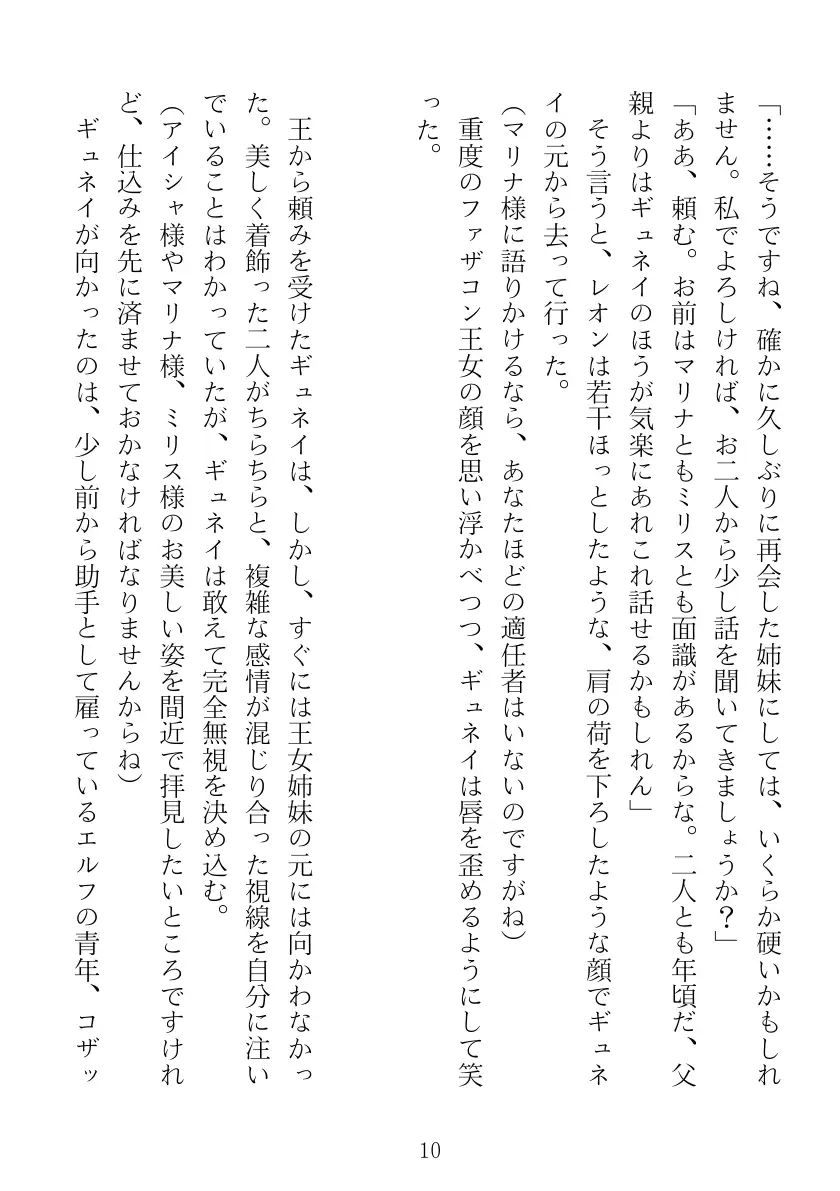 「……そうですね、確かに久しぶりに再会した姉妹にしては、いくらか硬いかもしれ
ません。私でよろしければ、お二人から少し話を聞いてきましょうか？」
「ああ、頼む。お前はマリナともミリスとも面識があるからな。二人とも年頃だ、父
親よりはギュネイのほうが気楽にあれこれ話せるかもしれん」
　そう言うと、レオンは若干ほっとしたような、肩の荷を下ろしたような顔でギュネ
イの元から去って行った。
（マリナ様に語りかけるなら、あなたほどの適任者はいないのですがね）
　重度のファザコン王女の顔を思い浮かべつつ、ギュネイは唇を歪めるようにして笑
った。
　王から頼みを受けたギュネイは、しかし、すぐには王女姉妹の元には向かわなかっ
た。美しく着飾った二人がちらちらと、複雑な感情が混じり合った視線を自分に注い
でいることはわかっていたが、ギュネイは敢えて完全無視を決め込む。
（アイシャ様やマリナ様、ミリス様のお美しい姿を間近で拝見したいところですけれ
ど、仕込みを先に済ませておかなければなりませんからね）
　ギュネイが向かったのは、少し前から助手として雇っているエルフの青年、コザッ
10